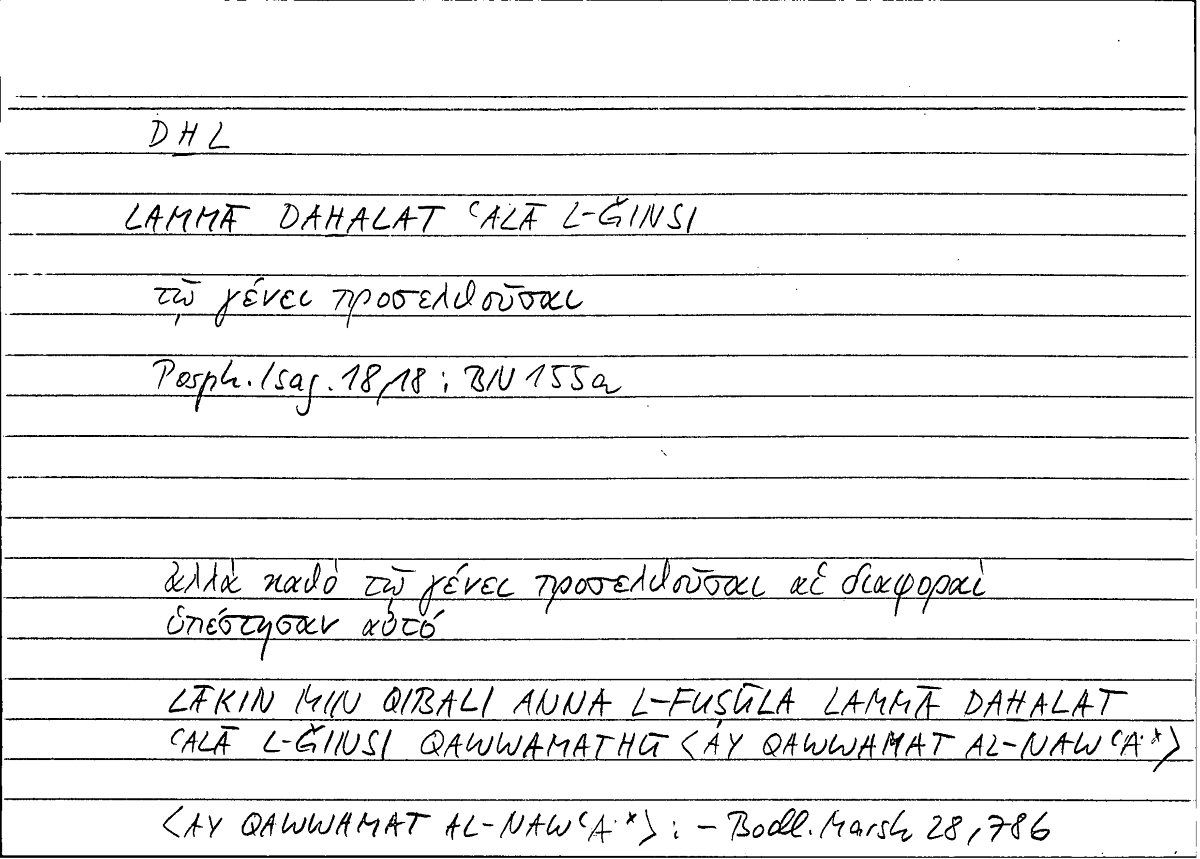 DH̲L
LAMMĀ DAH̲ALAT ʿALĀ L-ǦINSI
τῷ γένει προσελθοῦσαι
Porph. Isag. 18,18 : BN 155a
ἀλλὰ καθὸ τῷ γένει προσελθοῦσαι αἱ διαφοραὶ
ὑπέστησαν αὐτό
LĀKIN MIN QIBALI ANNA L-FUṢŪLA LAMMĀ DAH̲ALAT
ʿALĀ L-ǦINSI QAWWAMATHŪ <AY QAWWAMAT AL-NAWʿA*>
<AY QAWWAMAT AL-NAWʿA*> : – Bodl. Marsh 28, 786